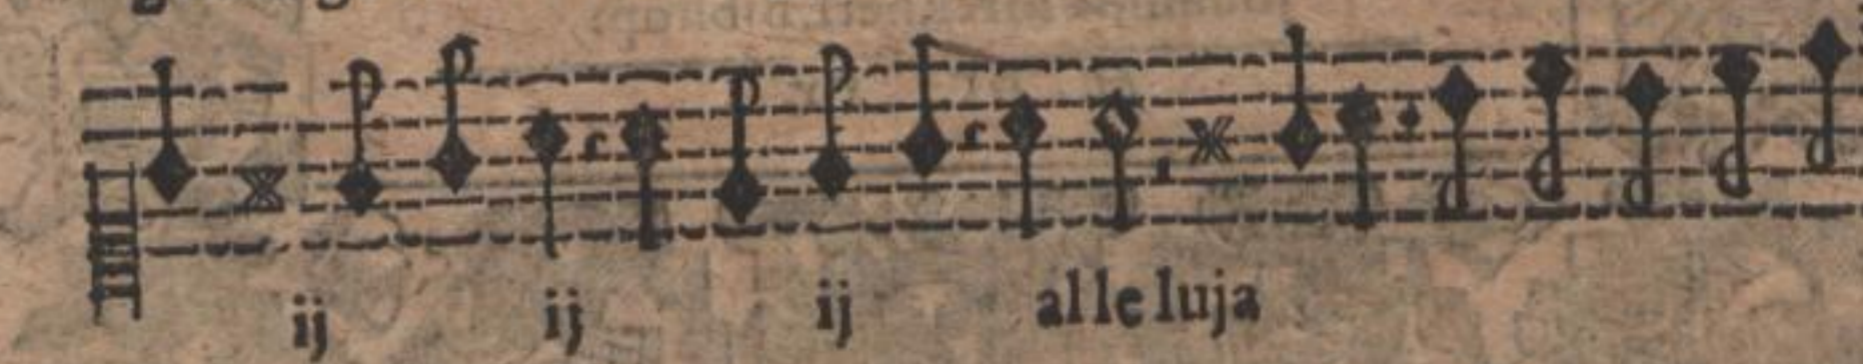 ij ij ij al le luja